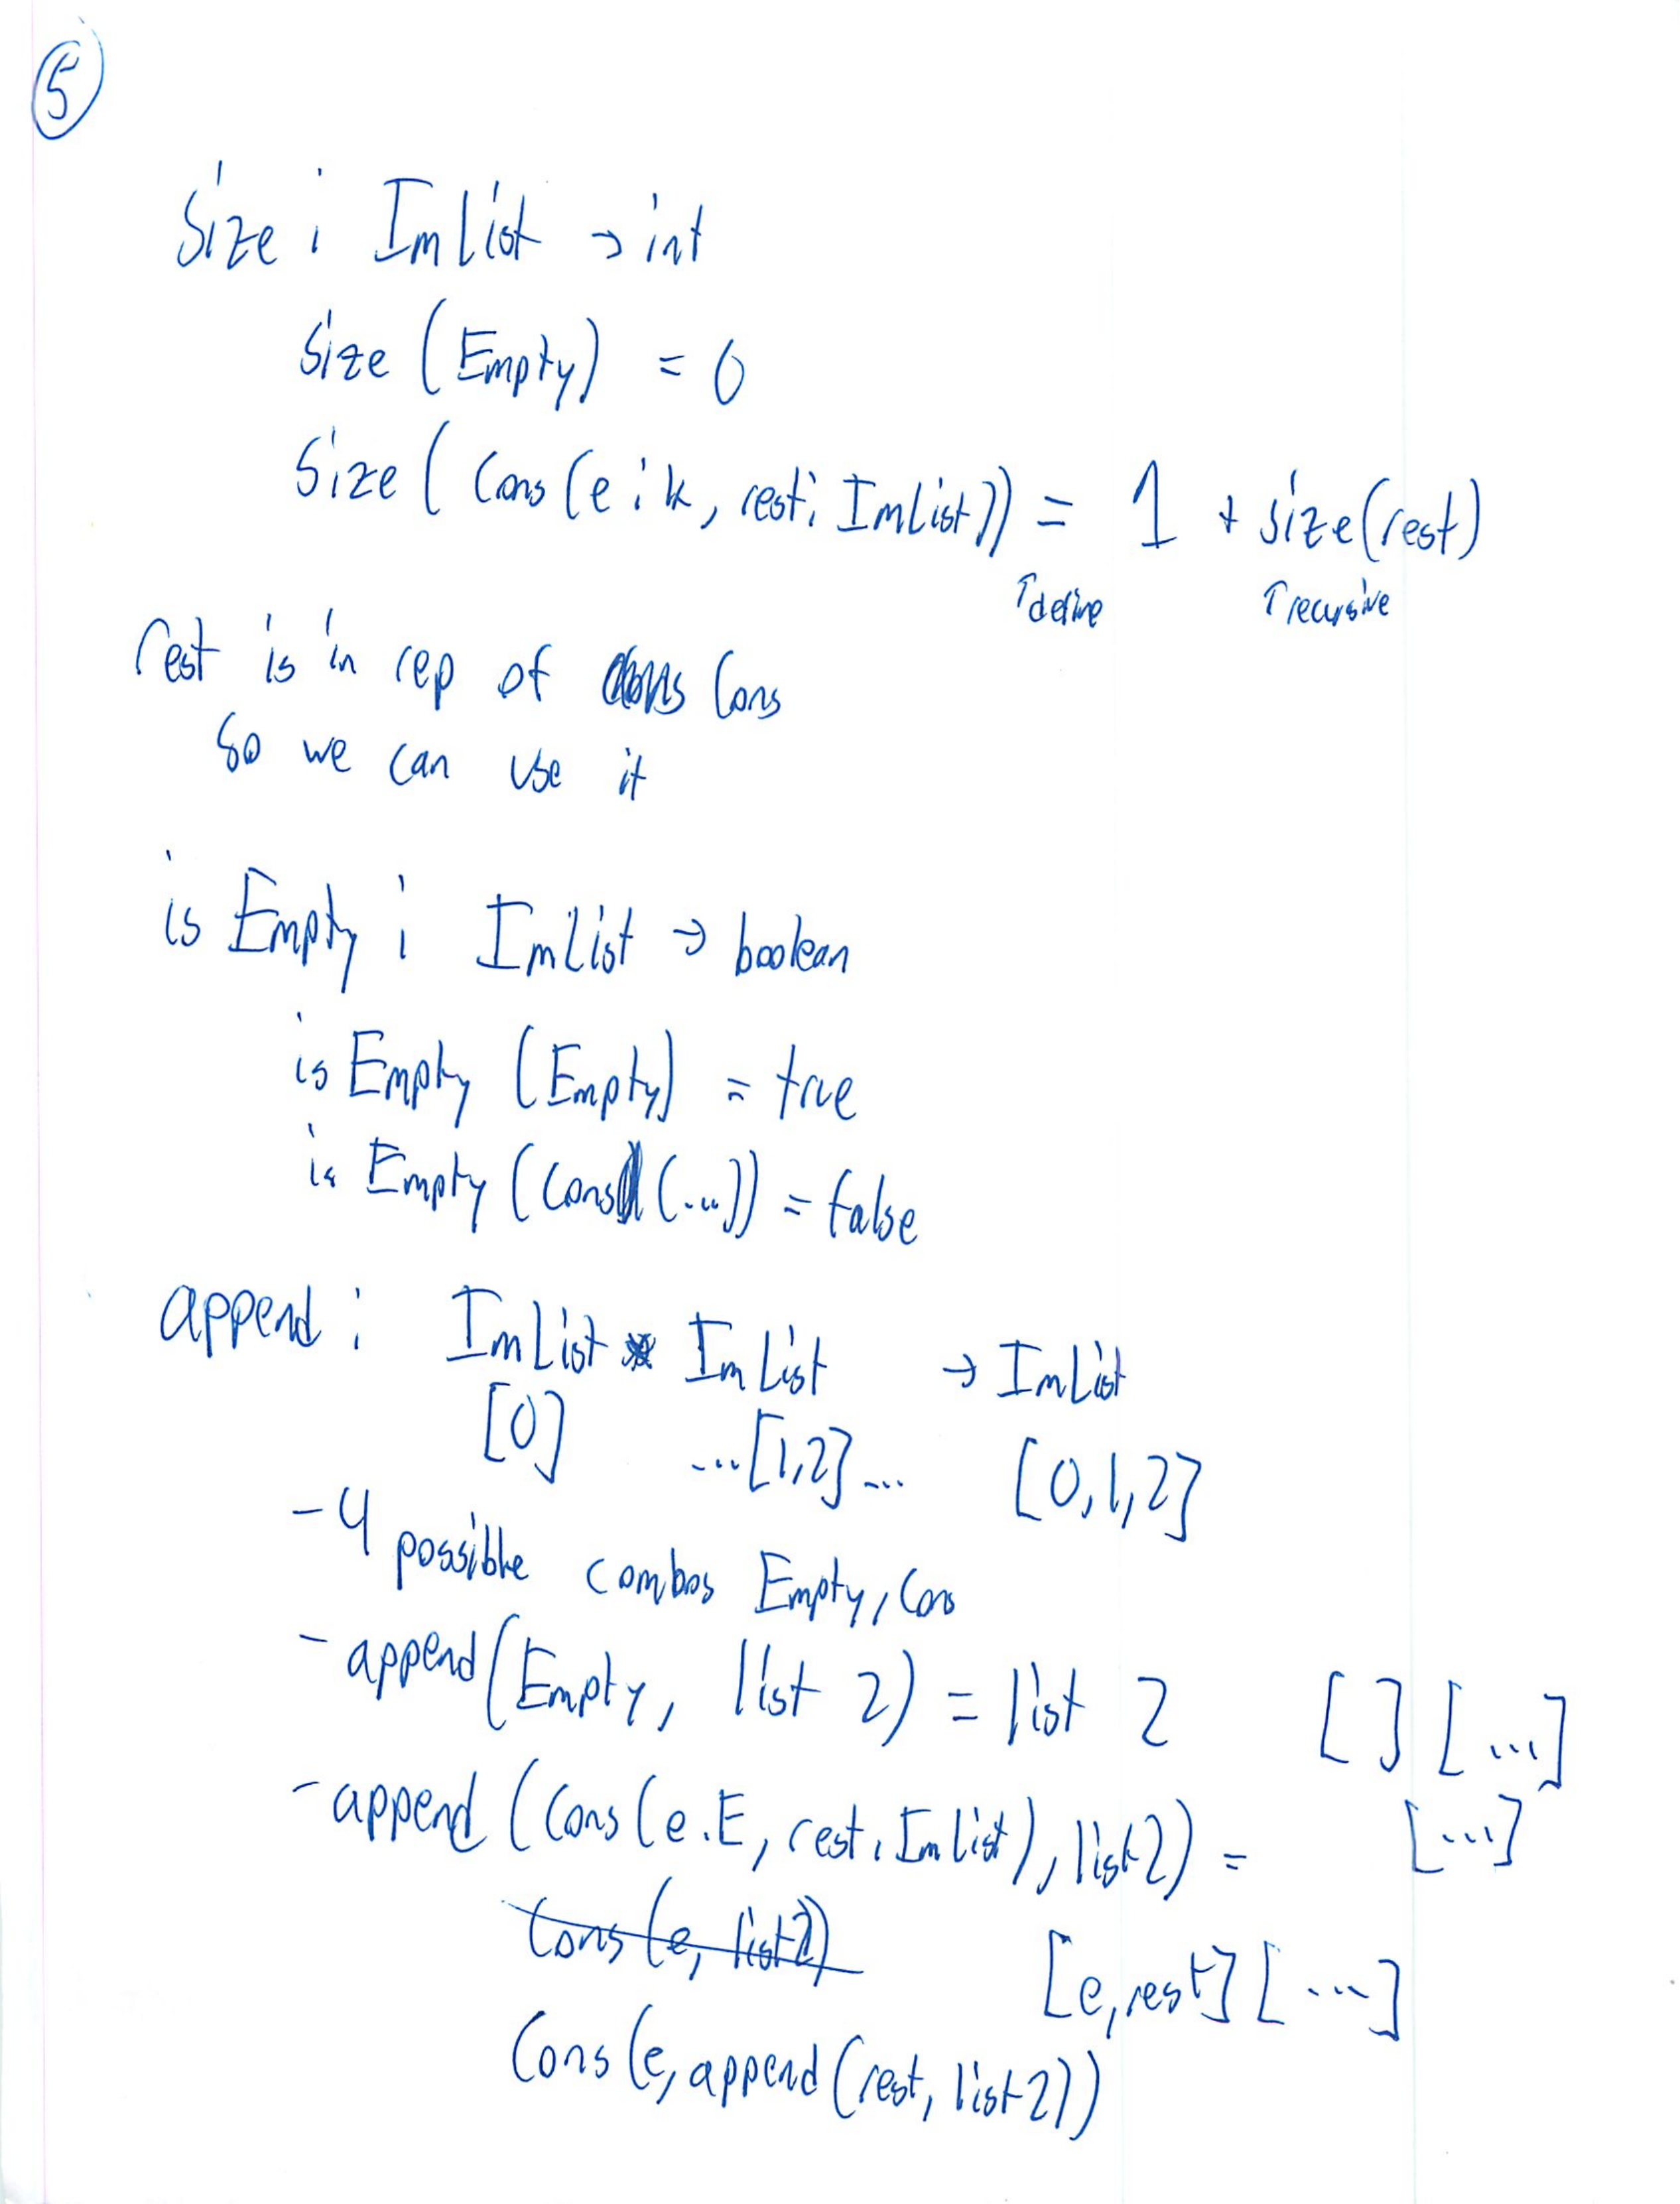 5
Size : ImList → int
Size (Empty) = 0
Size ( Cons (e : k, rest : ImList)) = 1 + size(rest)
↑ define ↑ recursive
rest is in rep of Cons
So we can use it
is Empty : ImList → boolean
is Empty (Empty) = true
is Empty (Cons (...)) = false
append : ImList * ImList → ImList
[0] ...[1,2]... [0,1,2]
- 4 possible combos Empty, Cons
- append (Empty, list 2) = list 2 [ ] [ ... ]
- append (Cons (e : E, rest : ImList), list 2) = [ ... ]
Cons (e, list 2)
[e, rest] [ ... ]
Cons (e, append (rest, list 2))